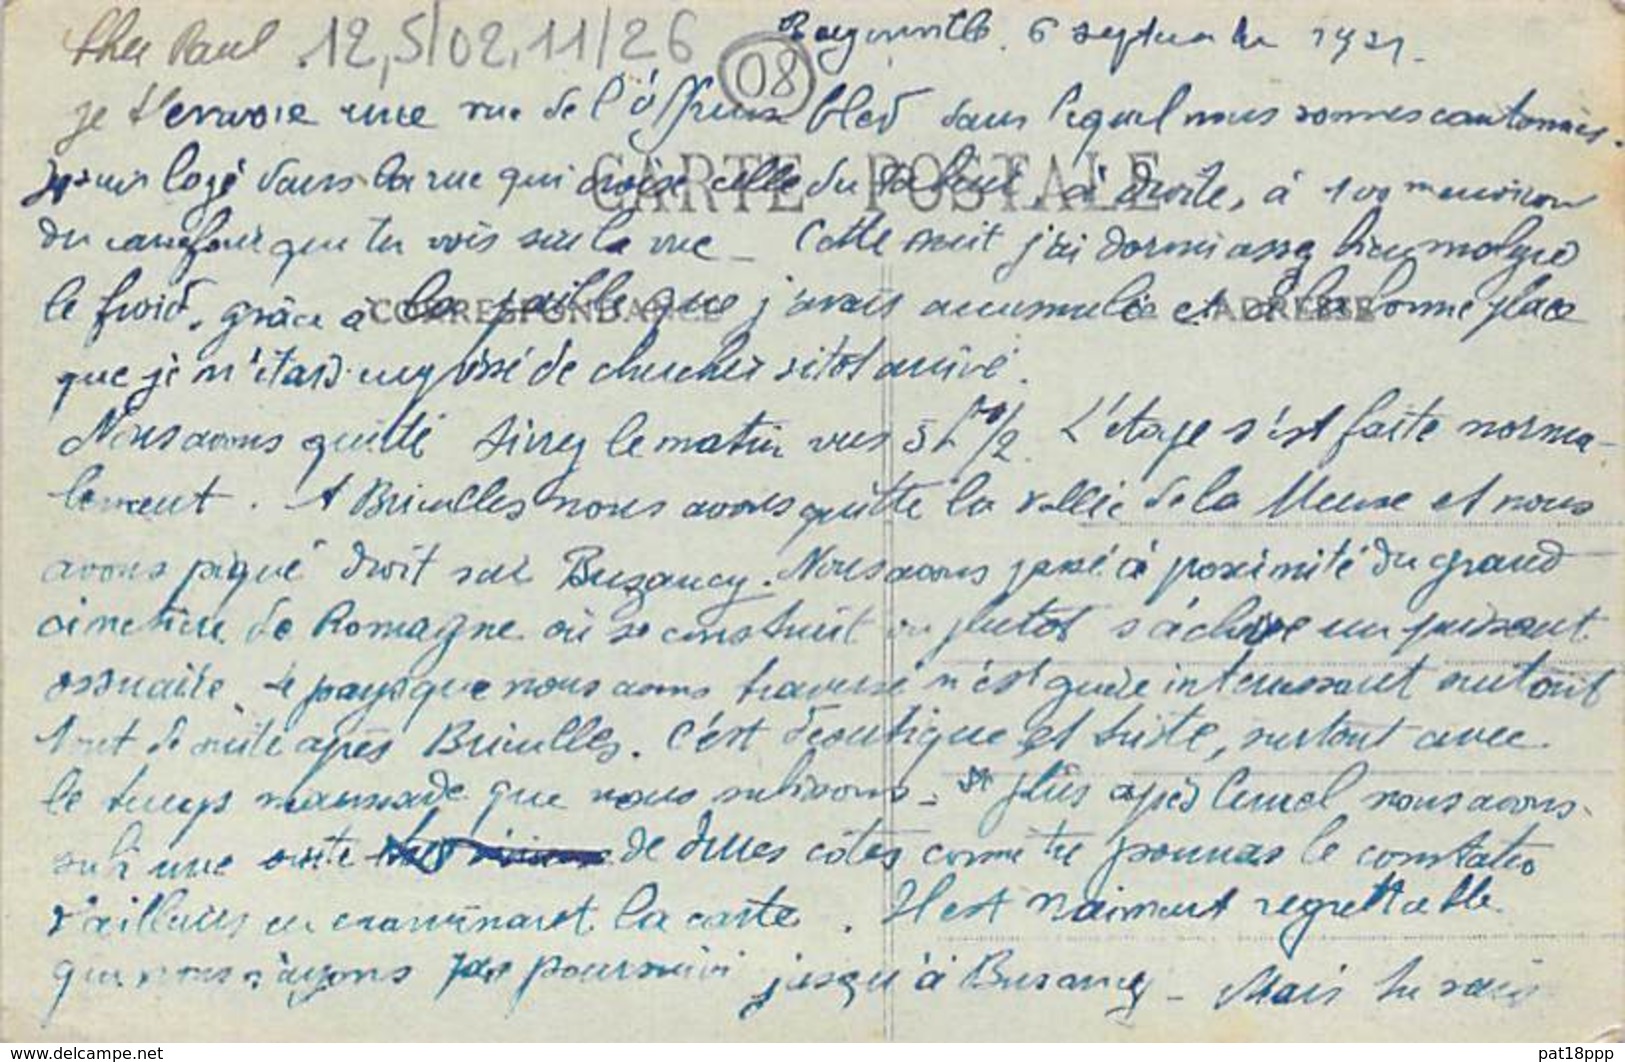 Cher Paul 12,5/02,11/26 08 6 septembre 1931.
je t'envoie une vue de l'affreux bled dans lequel nous sommes cantonnés.
Je suis logé dans la rue qui croise celle du tabac, à droite, à 100 m environ
CARTE POSTALE
du carrefour que tu vois sur la vue _ Cette nuit j'ai dormi assez bien malgré
le froid, grâce à la paille que j'avais accumulée et à la bonne place
CORRESPONDANCE ADRESSE
que je m'étais empressé de chercher sitôt arrivé.
Nous avons quitté Sivry le matin vers 5h 1/2. L'étape s'est faite norma-
lement. A Brieulles nous avons quitté la vallée de la Meuse et nous
avons piqué droit sur Buzancy. Nous avons passé à proximité du grand
cimetière de Romagne où se construit ou plutôt s'achève un puissant
ossuaire. Le pays que nous avons traversé n'est guère intéressant surtout
tout de suite après Brieulles. C'est désertique et triste, surtout avec
le temps maussade que nous subissons _ plus après nous avons
subi une suite de côtes comme tu pourras le constater
d'ailleurs en examinant la carte. Il est vraiment regrettable
que nous n'ayons pas poursuivi jusqu'à Buzancy _ Mais tu sais
pat18ppp